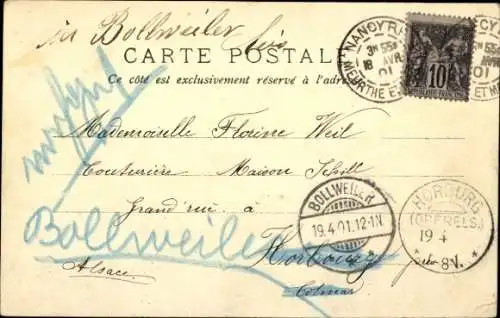 via Bollweiler
CARTE POSTALE
Ce côté est exclusivement réservé à l'adresse
NANCY R.P.
3E 55
18 AVRIL
01
MEURTHE ET M
10
Mademoiselle Florine Weil
Couturière Maison Schill
Grand'rue à
Horbourg
Colmar
Alsace
Bollweiler
BOLLWEILER
19.4.01.12-1N.
HORBURG
(OBERELS.)
19 4
8V.